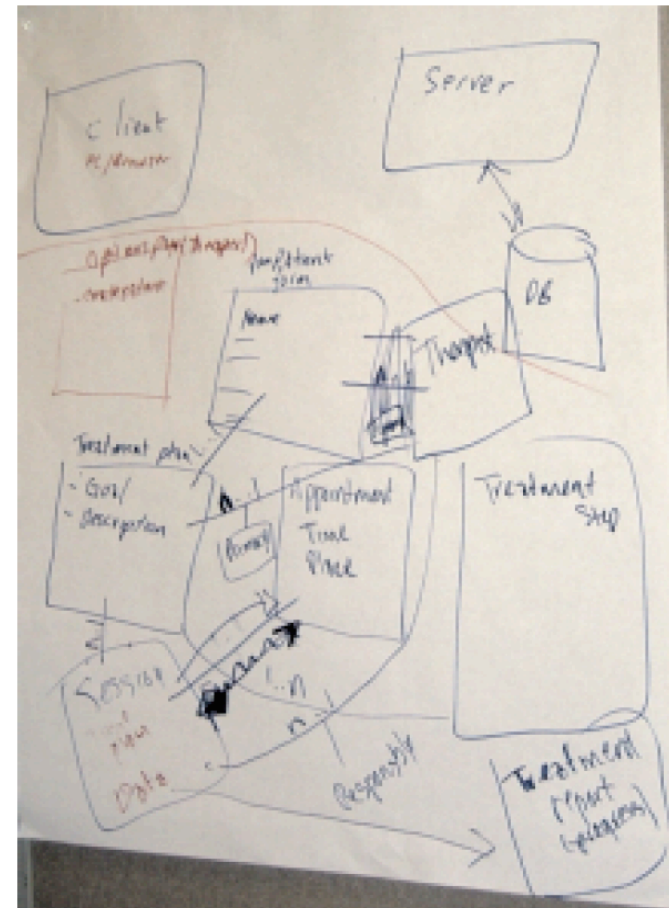 Client
PC/Browser
Server
DB
form
Name
Therapist
Treatment plan
- Goal
- Description
n..1
Primary
Appointment
Time
Place
Treatment
Step
Session
plan
Data
1..n
n..1
Responsible
Treatment
report